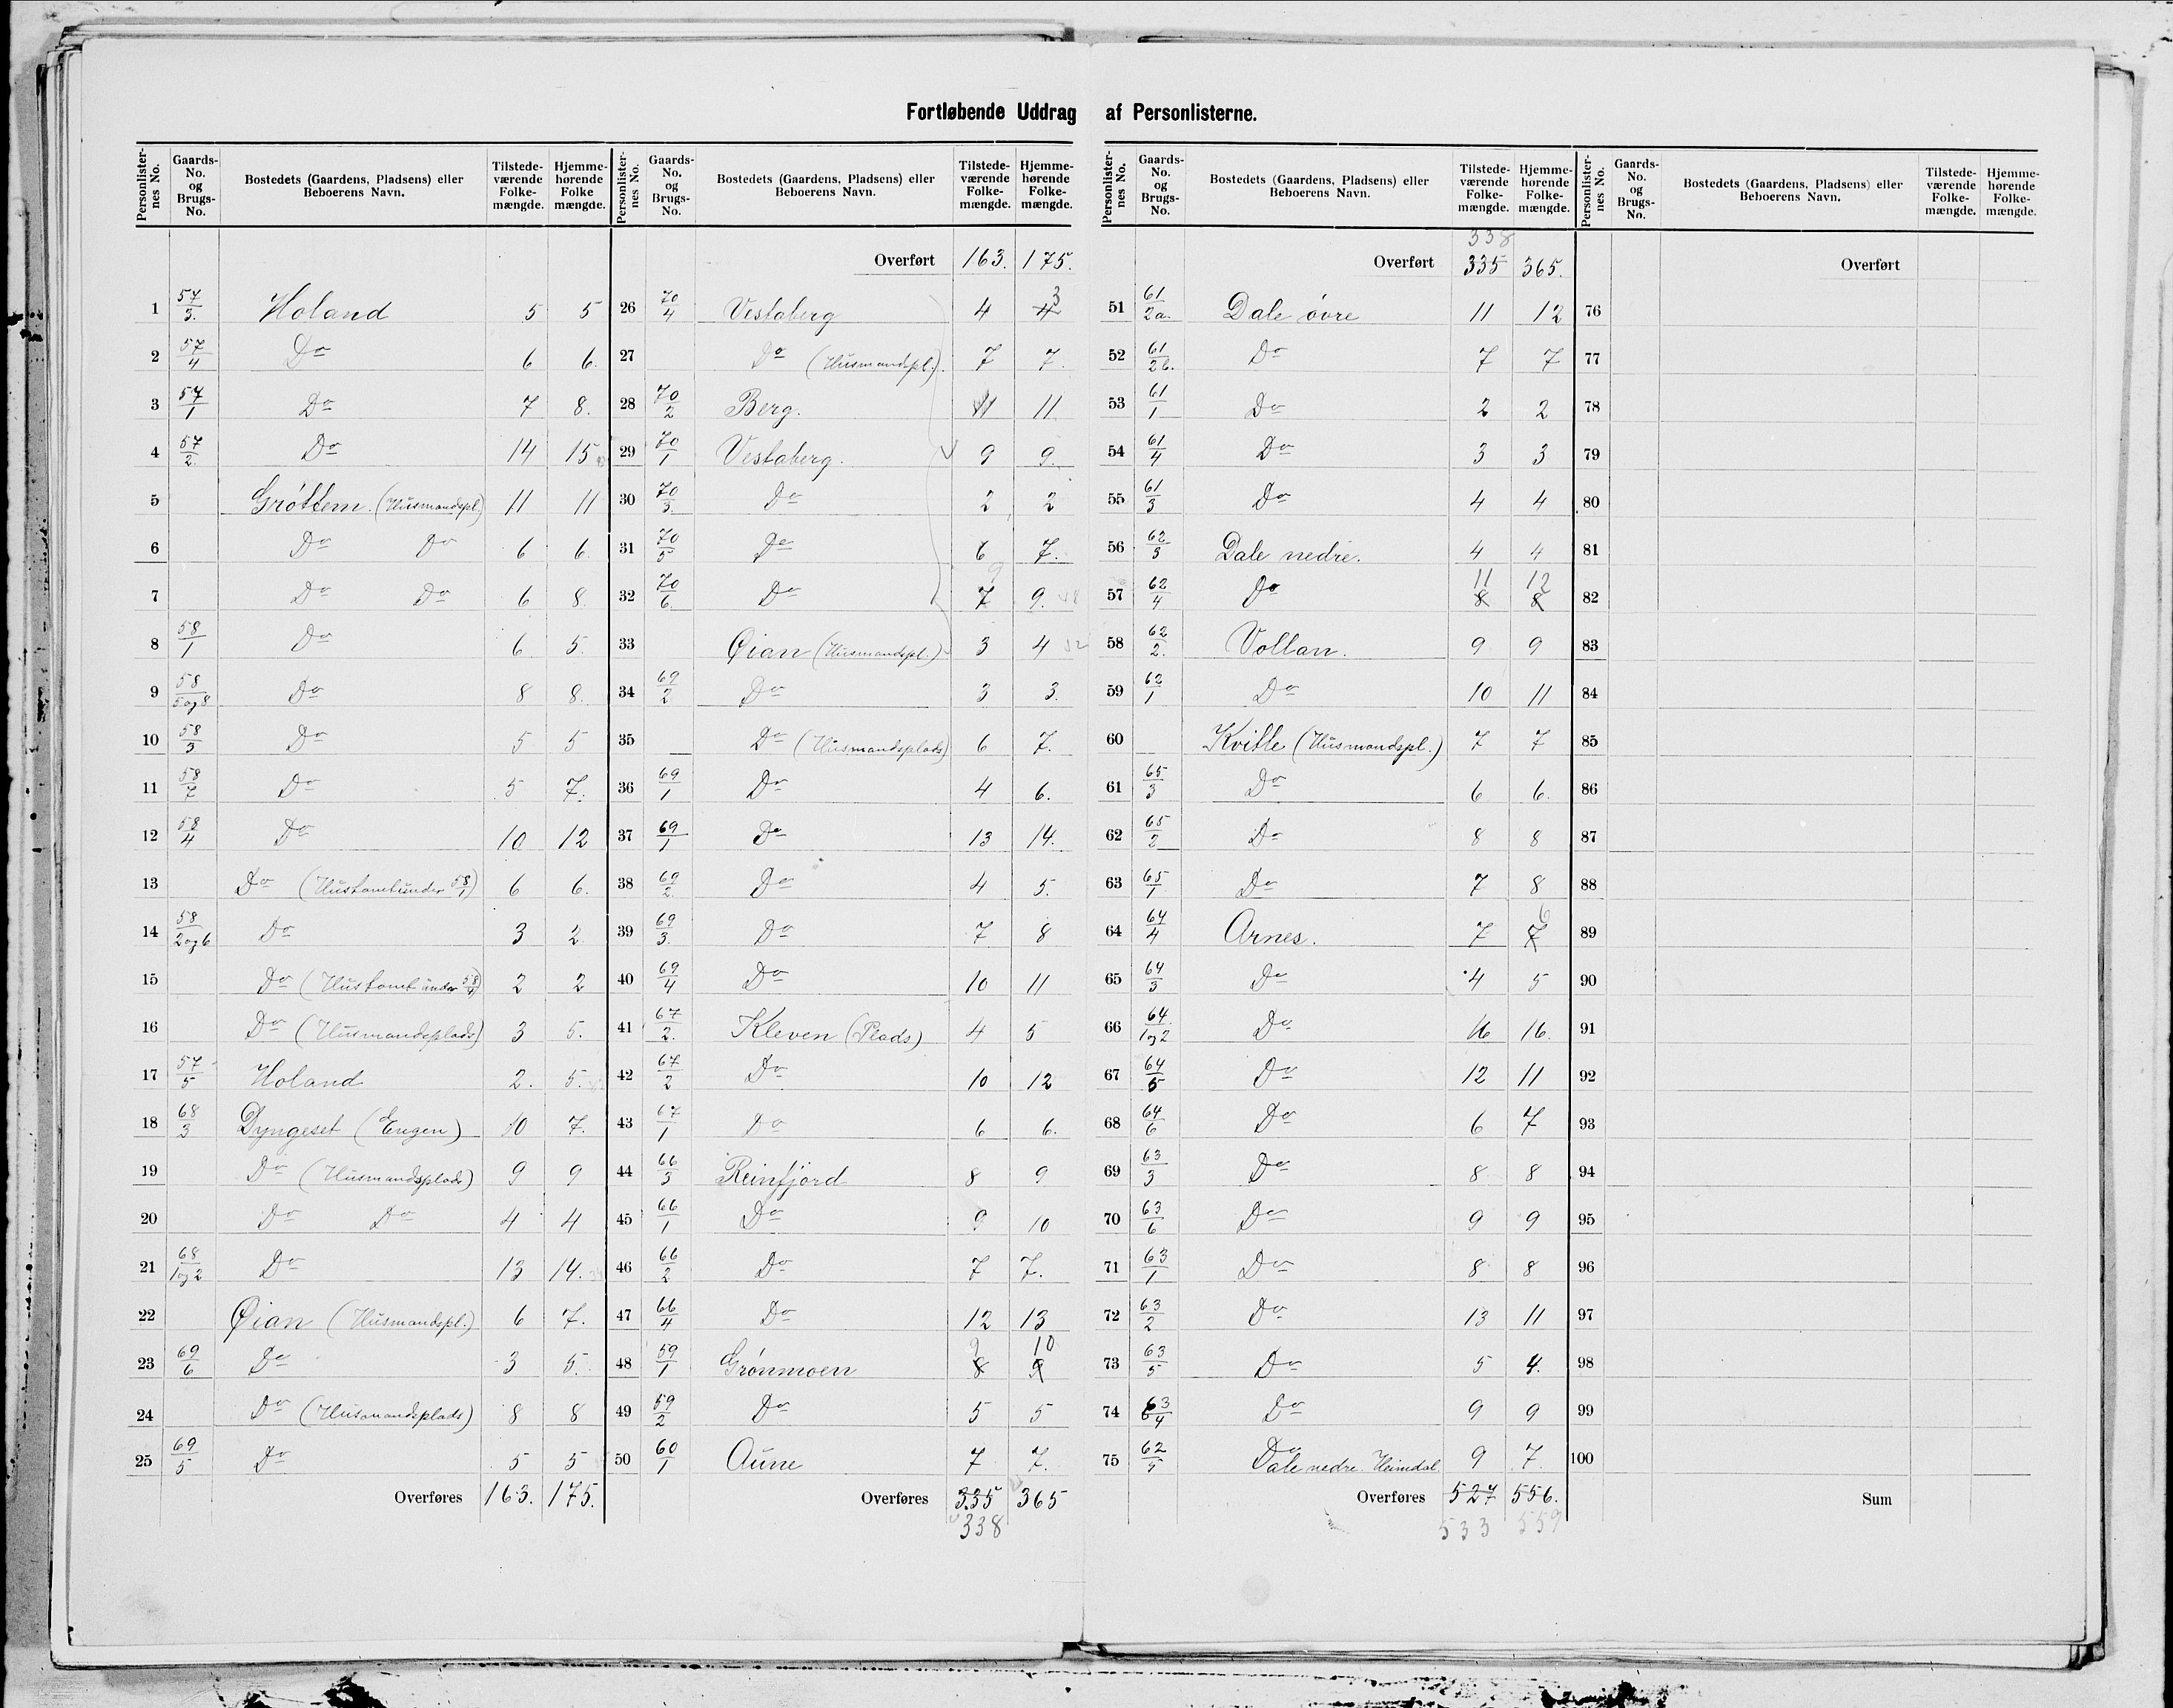 Fortløbende Uddrag af Personlisterne.
Personlister-nes No. | Gaards-No. og Brugs-No. | Bostedets (Gaardens, Pladsens) eller Beboerens Navn. | Tilstede-værende Folke-mængde. | Hjemme-hørende Folke mængde.
1 57/3. Holand 5 5
2 57/4 Do 6 6.
3 57/1 Do 7 8.
4 57/2. Do 14 15
5 Grøttem. (Husmandspl.) 11 11
6 Do Do 6 6
7 Do Do 6 8.
8 58/1 Do 6 5.
9 58/5og8 Do 8 8.
10 58/3 Do 5 5
11 58/7 Do 5 7.
12 58/4 Do 10 12
13 Do (Hustomt under 58/1) 6 6.
14 58/2og6 Do 3 2
15 Do (Hustomt under 58/4) 2 2
16 Do (Husmandsplads) 3 5.
17 57/5 Holand 2. 5.
18 68/3 Dyngeset (Engen) 10 7.
19 Do (Husmandsplads) 9 9
20 Do Do 4 4
21 68/1og2 Do 13 14.
22 Øian (Husmandspl.) 6 7.
23 69/6 Do 3 5.
24 Do (Husmandsplads) 8 8
25 69/5 Do 5 5
Overføres 163. 175.
Personlister-nes No. | Gaards-No. og Brugs-No. | Bostedets (Gaardens, Pladsens) eller Beboerens Navn. | Tilstede-værende Folke-mængde. | Hjemme-hørende Folke-mængde.
Overført 163. 175.
26 70/4 Vestaberg 4 4 3
27 Do (Husmandspl.) 7 7.
28 70/2 Berg. 11 11
29 70/1 Vestaberg. 9 9.
30 70/3. Do 2 2
31 70/5 Do 6 7.
32 70/6. Do 7 9 9.
33 Øian (Husmandspl.) 3 4
34 69/2 Do 3 3.
35 Do (Husmandsplads) 6 7.
36 69/1 Do 4 6.
37 69/1 Do 13 14.
38 69/2. Do 4 5.
39 69/3. Do 7 8
40 69/4 Do 10 11
41 67/2. Kleven (Plads) 4 5
42 67/2 Do 10 12
43 67/1 Do 6 6.
44 66/3 Reinfjord 8 9
45 66/1 Do 9 10
46 66/2 Do 7 7.
47 66/4 Do 12 13
48 59/1 Grønmoen 8 9 9 10
49 59/2 Do 5 5
50 60/1 Aune 7 7.
Overføres 335 365
338
Personlister-nes No. | Gaards-No. og Brugs-No. | Bostedets (Gaardens, Pladsens) eller Beboerens Navn. | Tilstede-værende Folke-mængde. | Hjemme-hørende Folke-mængde.
338
Overført 335 365.
51 61/2a. Dale øvre 11 12
52 61/2b. Do 7 7
53 61/1 Do 2 2
54 61/4 Do 3 3
55 61/3 Do 4 4
56 62/3 Dale nedre. 4 4
57 62/4 Do 8 11 8 12
58 62/2. Vollan. 9 9
59 62/1 Do 10 11
60 Kvitle (Husmandspl.) 7 7
61 65/3 Do 6 6.
62 65/2 Do 8 8
63 65/1 Do 7 8
64 64/4 Arnes. 7 7 6
65 64/3 Do 4 5
66 64/1og2 Do 16 16.
67 64/5 Do 12 11
68 64/6 Do 6 7
69 63/3 Do 8 8
70 63/6 Do 9 9
71 63/1 Do 8 8
72 63/2 Do 13 11
73 63/5 Do 5 4.
74 63/4 Do 9 9
75 62/5 Dale nedre. Heimdal 9 7.
Overføres 527 556.
533 559
Personlister-nes No. | Gaards-No. og Brugs-No. | Bostedets (Gaardens, Pladsens) eller Beboerens Navn. | Tilstede-værende Folke-mængde. | Hjemme-hørende Folke-mængde.
Overført
76
77
78
79
80
81
82
83
84
85
86
87
88
89
90
91
92
93
94
95
96
97
98
99
100
Sum